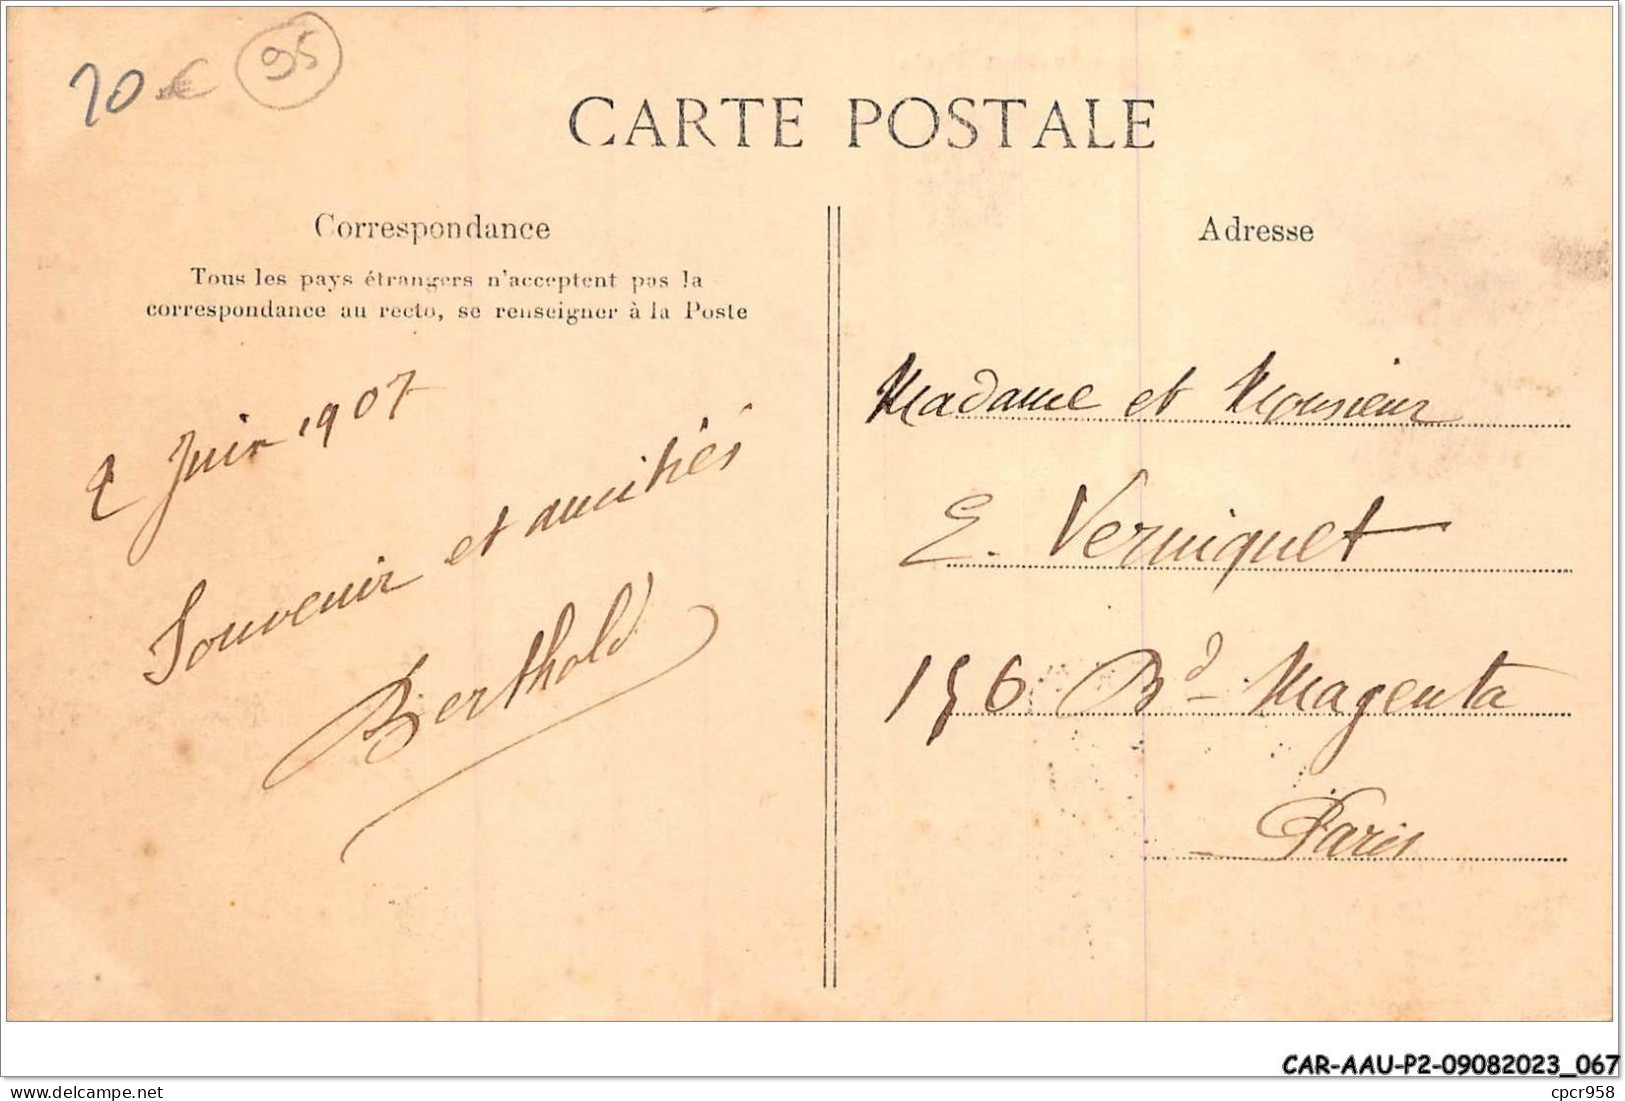 10 €
95
CARTE POSTALE
Correspondance
Tous les pays étrangers n'acceptent pas la
correspondance au recto, se renseigner à la Poste
2 Juin 1907
Souvenir et amitiés
Berthold
Adresse
Madame et Monsieur
E. Verniquet
156 Bd Magenta
Paris
CAR-AAU-P2-09082023_067
cpcr958